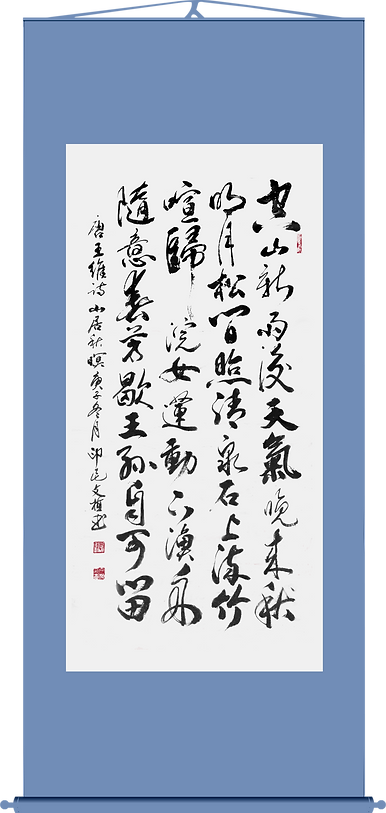 空山新雨後天氣晚來秋
明月松間照清泉石上流竹
喧歸浣女蓮動下漁舟
隨意春芳歇王孫自可留
唐王維詩山居秋暝庚子冬月印尼文植書